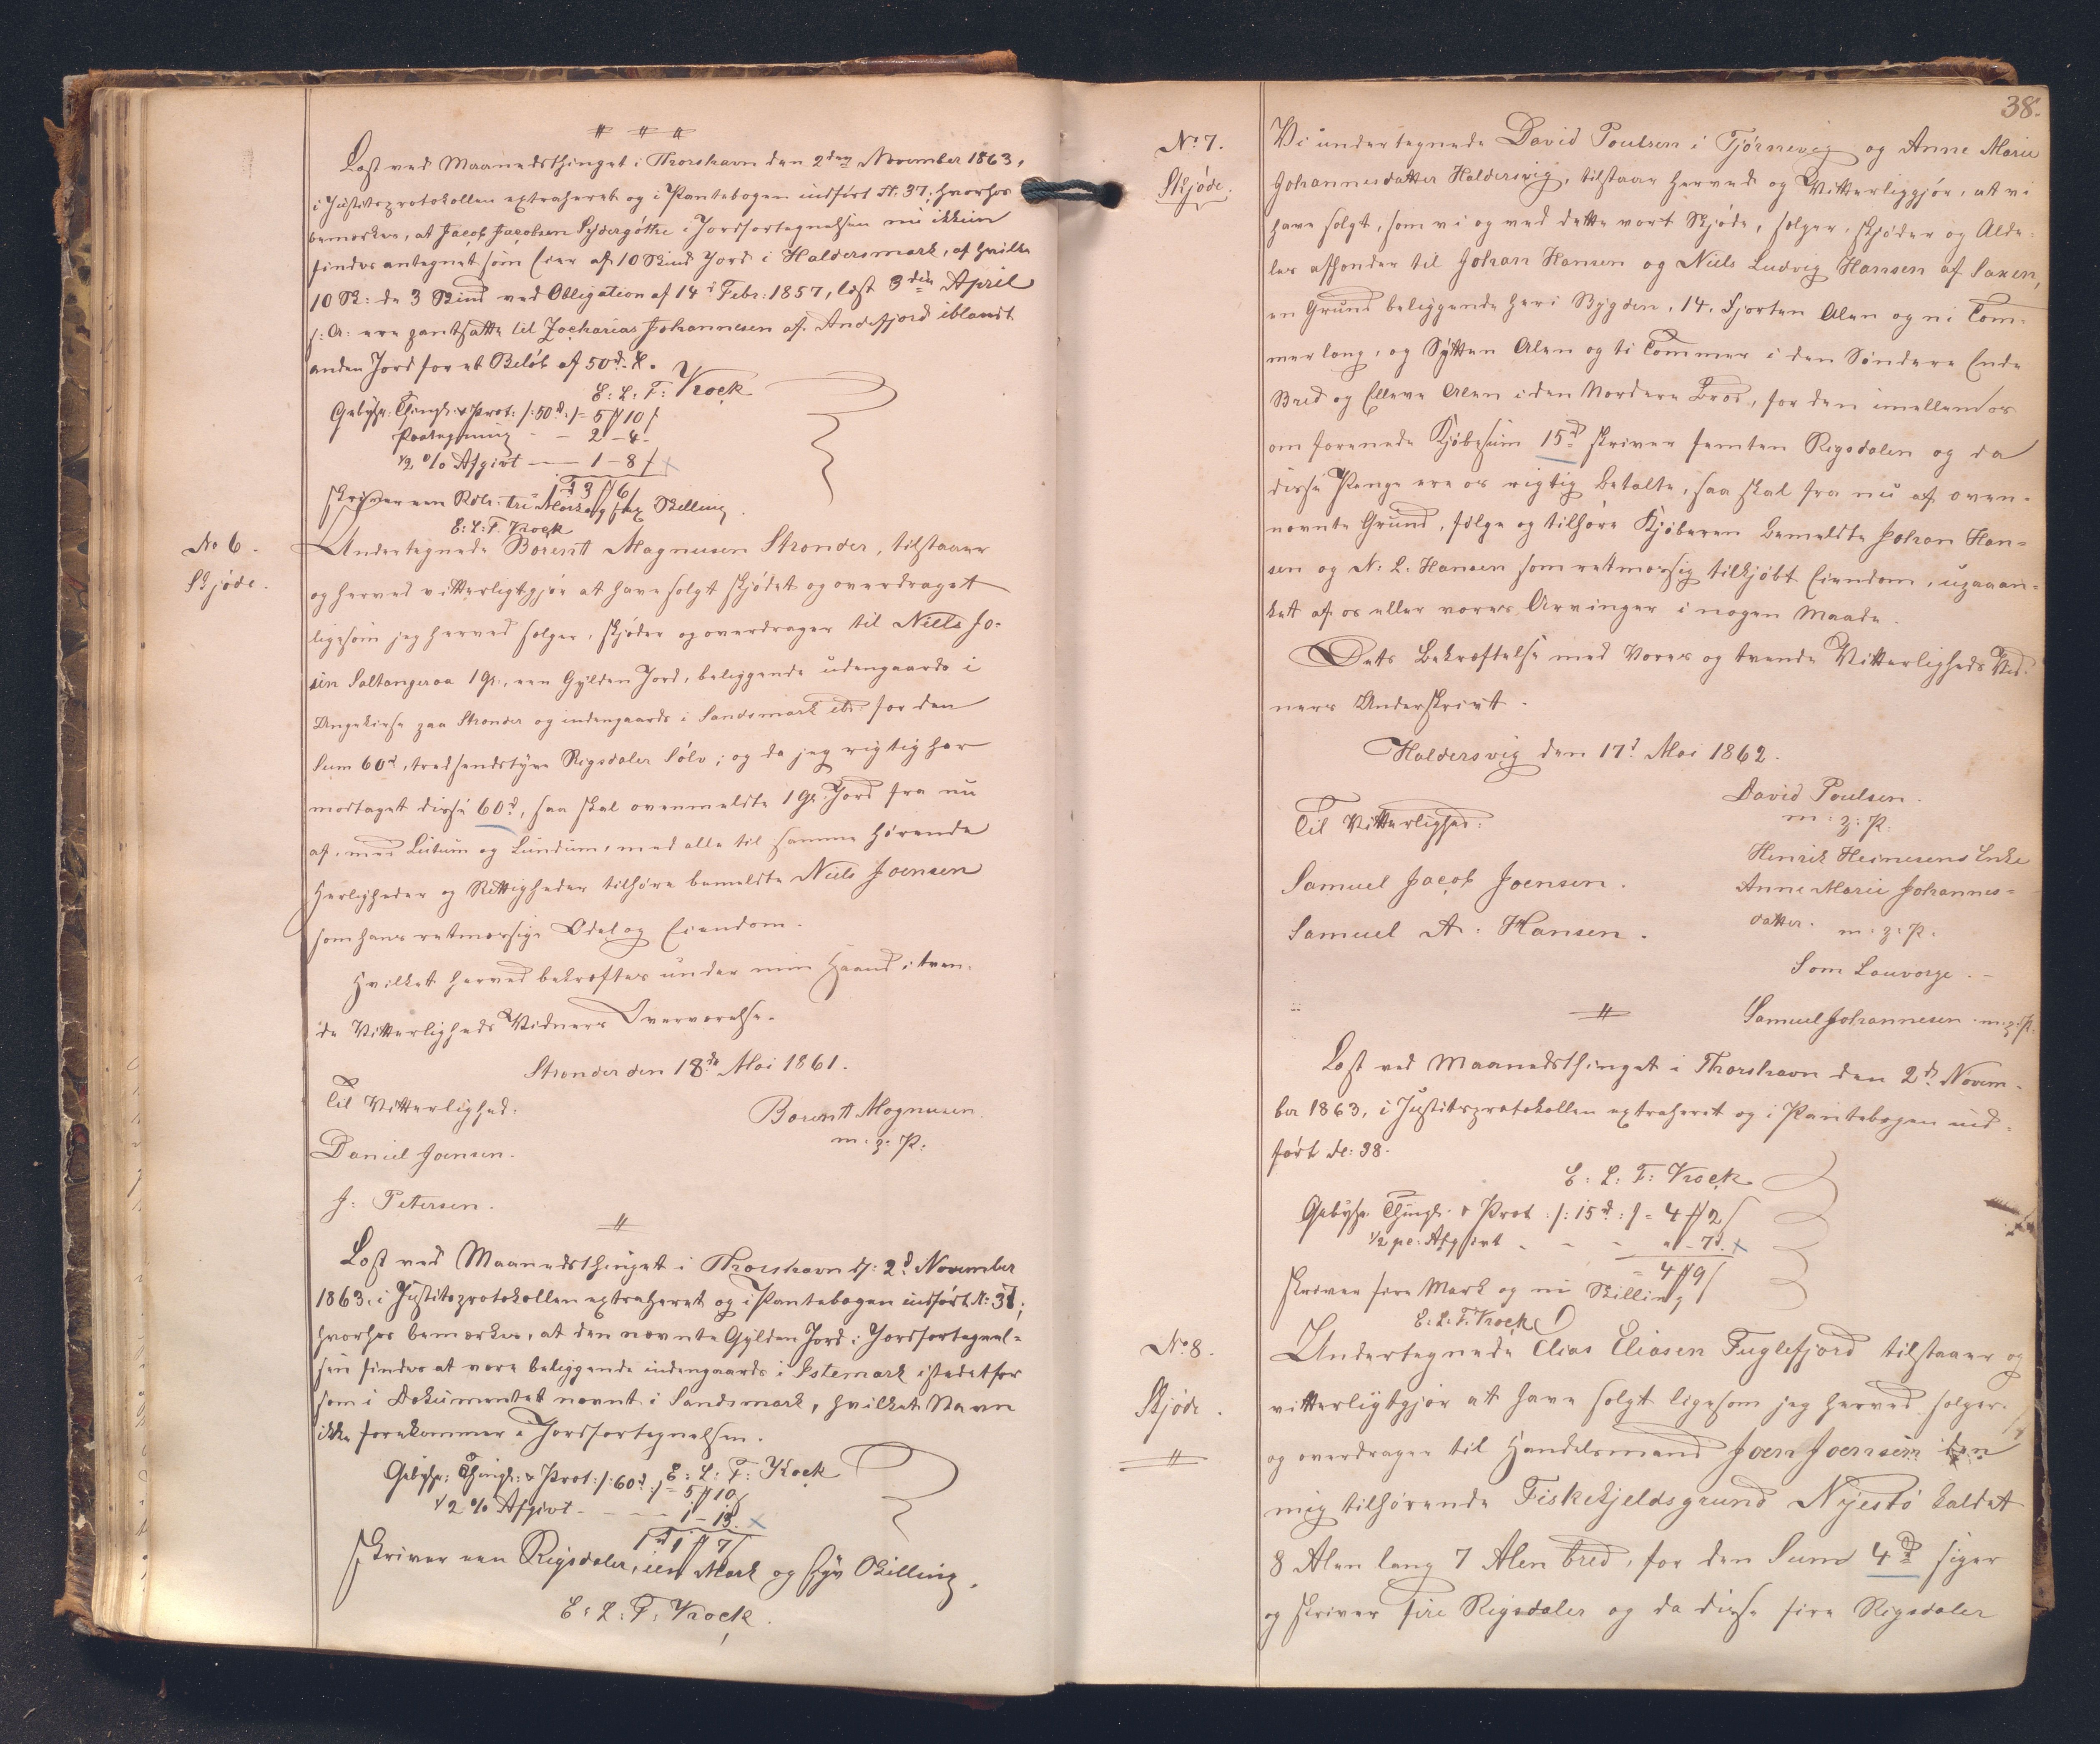 Læst ved Maanedsthinget i Thorshavn den 2den November 1863,
i Justitsprotokollen extraheret og i Pantebogen indført N: 37; hvorhos
bemærkes, at Jacob Jacobsen Sydergøthe i Jordfortegnelsen nu ikkun
findes antegnet som Eier af 10 Skind Jord i Haldersmark, af hvilke
10 Sk: de 3 Skind ved Obligation af 14d Febr: 1857, læst 3die April
s: A: ere pantsatte til Zacharias Johannesen af Andefjord iblandt
anden Jord for et Beløb af 50d. R.
E: L: F: Kock
Gebyhr: Thingl: & Prot: /:50d:/ = 5 # 10 /
Paategning - - 2 - 4 -
1/2 % Afgivt - 1 - 8 /
1d 3 # 6 /
skriver een Rdlr: tre Mark og sex Skilling.
E: L: F. Kock
No 6.
Skjøde.
Undertegnede Borentt Magnusen Strender, tilstaaer
og herved vitterligtgjør at have solgt skjødet og overdraget
ligesom jeg herved sælger, skjøder og overdrager til Niels Jo-
sen Saltangeraa 1 Gl., een Gylden Jord, beliggende udengaards i
paa Strender og indengaards i Sandsmark for den
Sum 60d, tredsindstyve Rigsdaler Sølv; og da jeg rigtig har
modtaget disse 60d, saa skal ovenmeldte 1 Gl. Jord fra nu
af, med Lutum og Lundum, med alle til samme hørende
Herligheder og Rettigheder tilhøre bemeldte Niels Joensen
som hans retmæssige Odel og Eiendom.
Hvilket herved bekræftes under min Haand i tven-
de Vitterligheds Vidners Overværelse.
Strender den 18de Mai 1861.
Til Vitterlighed:
Borentt Magnusen.
m: p: P:
Daniel Joensen.
J: Petersen.
Læst ved Maanedsthinget i Thorshavn d: 2d November
1863, i Justitsprotokollen extraheret og i Pantebogen indført N: 37;
hvorhos bemærkes, at den nævnte Gylden Jord i Jordfortegnel-
sen findes at være beliggende indengaards i Østemark istedetfor
som i Dokumentet nævnt i Sandsmark, hvilket Navn
ikke forekommer i Jordfortegnelsen.
E: L: F: Kock
Gebyhr: Thingl: & Prot: /:60d:/ = 5 # 10 /
1/2 % Afgivt - - 1 - 13
1d 1 # 7 /
skriver een Rigsdaler, een Mark og syv Skilling.
E: L: F: Kock.
38.
No 7.
Skjøde.
Vi undertegnede David Poulsen i Tjørnevig og Anne Marie
Johannesdatter Haldersvig, tilstaar herved og Vitterliggjør, at vi
have solgt, som vi og ved dette vort Skjøde, sælger, skjøder og Alde-
les afhænder til Johan Hansen og Niels Ludvig Hansen af Saxen,
en Grund beliggende her i Bygden, 14, Fjorten Alen og ni Tom-
mer lang, og Sytten Alen og ti Tommer i den Søndere Ende
Bred og Elleve Alen i den Nordere Bred, for den imellem os
om forenede Kjøbesum 15d skriver femten Rigsdaler og da
disse Penge ere os rigtig betalte, saa skal fra nu af oven-
nævnte Grund, følge og tilhøre Kjøberen bemeldte Johan Han-
sen og N: L: Hansen som retmæssig tilkjøbt Eiendom, upaaan-
ket af os eller vores Arvinger i nogen Maade.
Dets Bekræftelse med Vores og tvende Vitterligheds Vid-
ners Underskrivt.
Haldersvig den 17d Mai 1862.
David Poulsen.
m: p: P:
Til Vitterlighed:
Henrik Heinesens Enke
Samuel Jacob Joensen.
Anne Marie Johannes-
datter. m: p: P:
Samuel A: Hansen.
Som Lauværge.
Samuel Johannesen m: p: P:
Læst ved Maanedsthinget i Thorshavn den 2d Novem-
ber 1863, i Justitsprotokollen extraheret og i Pantebogen ind-
ført N: 38.
E: L: F: Kock
Gebyhr. Thingl. & Prot. /:15d:/ = 4 # 2 /
1/2 pc: Afgivt - - - " - 7 /
= 4 # 9 /
skriver fire Mark og ni Skilling
E: L: F. Kock
No 8.
Skjøde.
Undertegnede Elias Eliasen Fuglefjord tilstaaer og
vitterligtgjør at have solgt ligesom jeg herved sælger
og overdrager til Handelsmand Joen Joensen den
mig tilhørende Fiskekjeldsgrund Nyestø kaldet
8 Alen lang 7 Alen bred, for den Sum 4d siger
og skriver fire Rigsdaler og da disse fire Rigsdaler